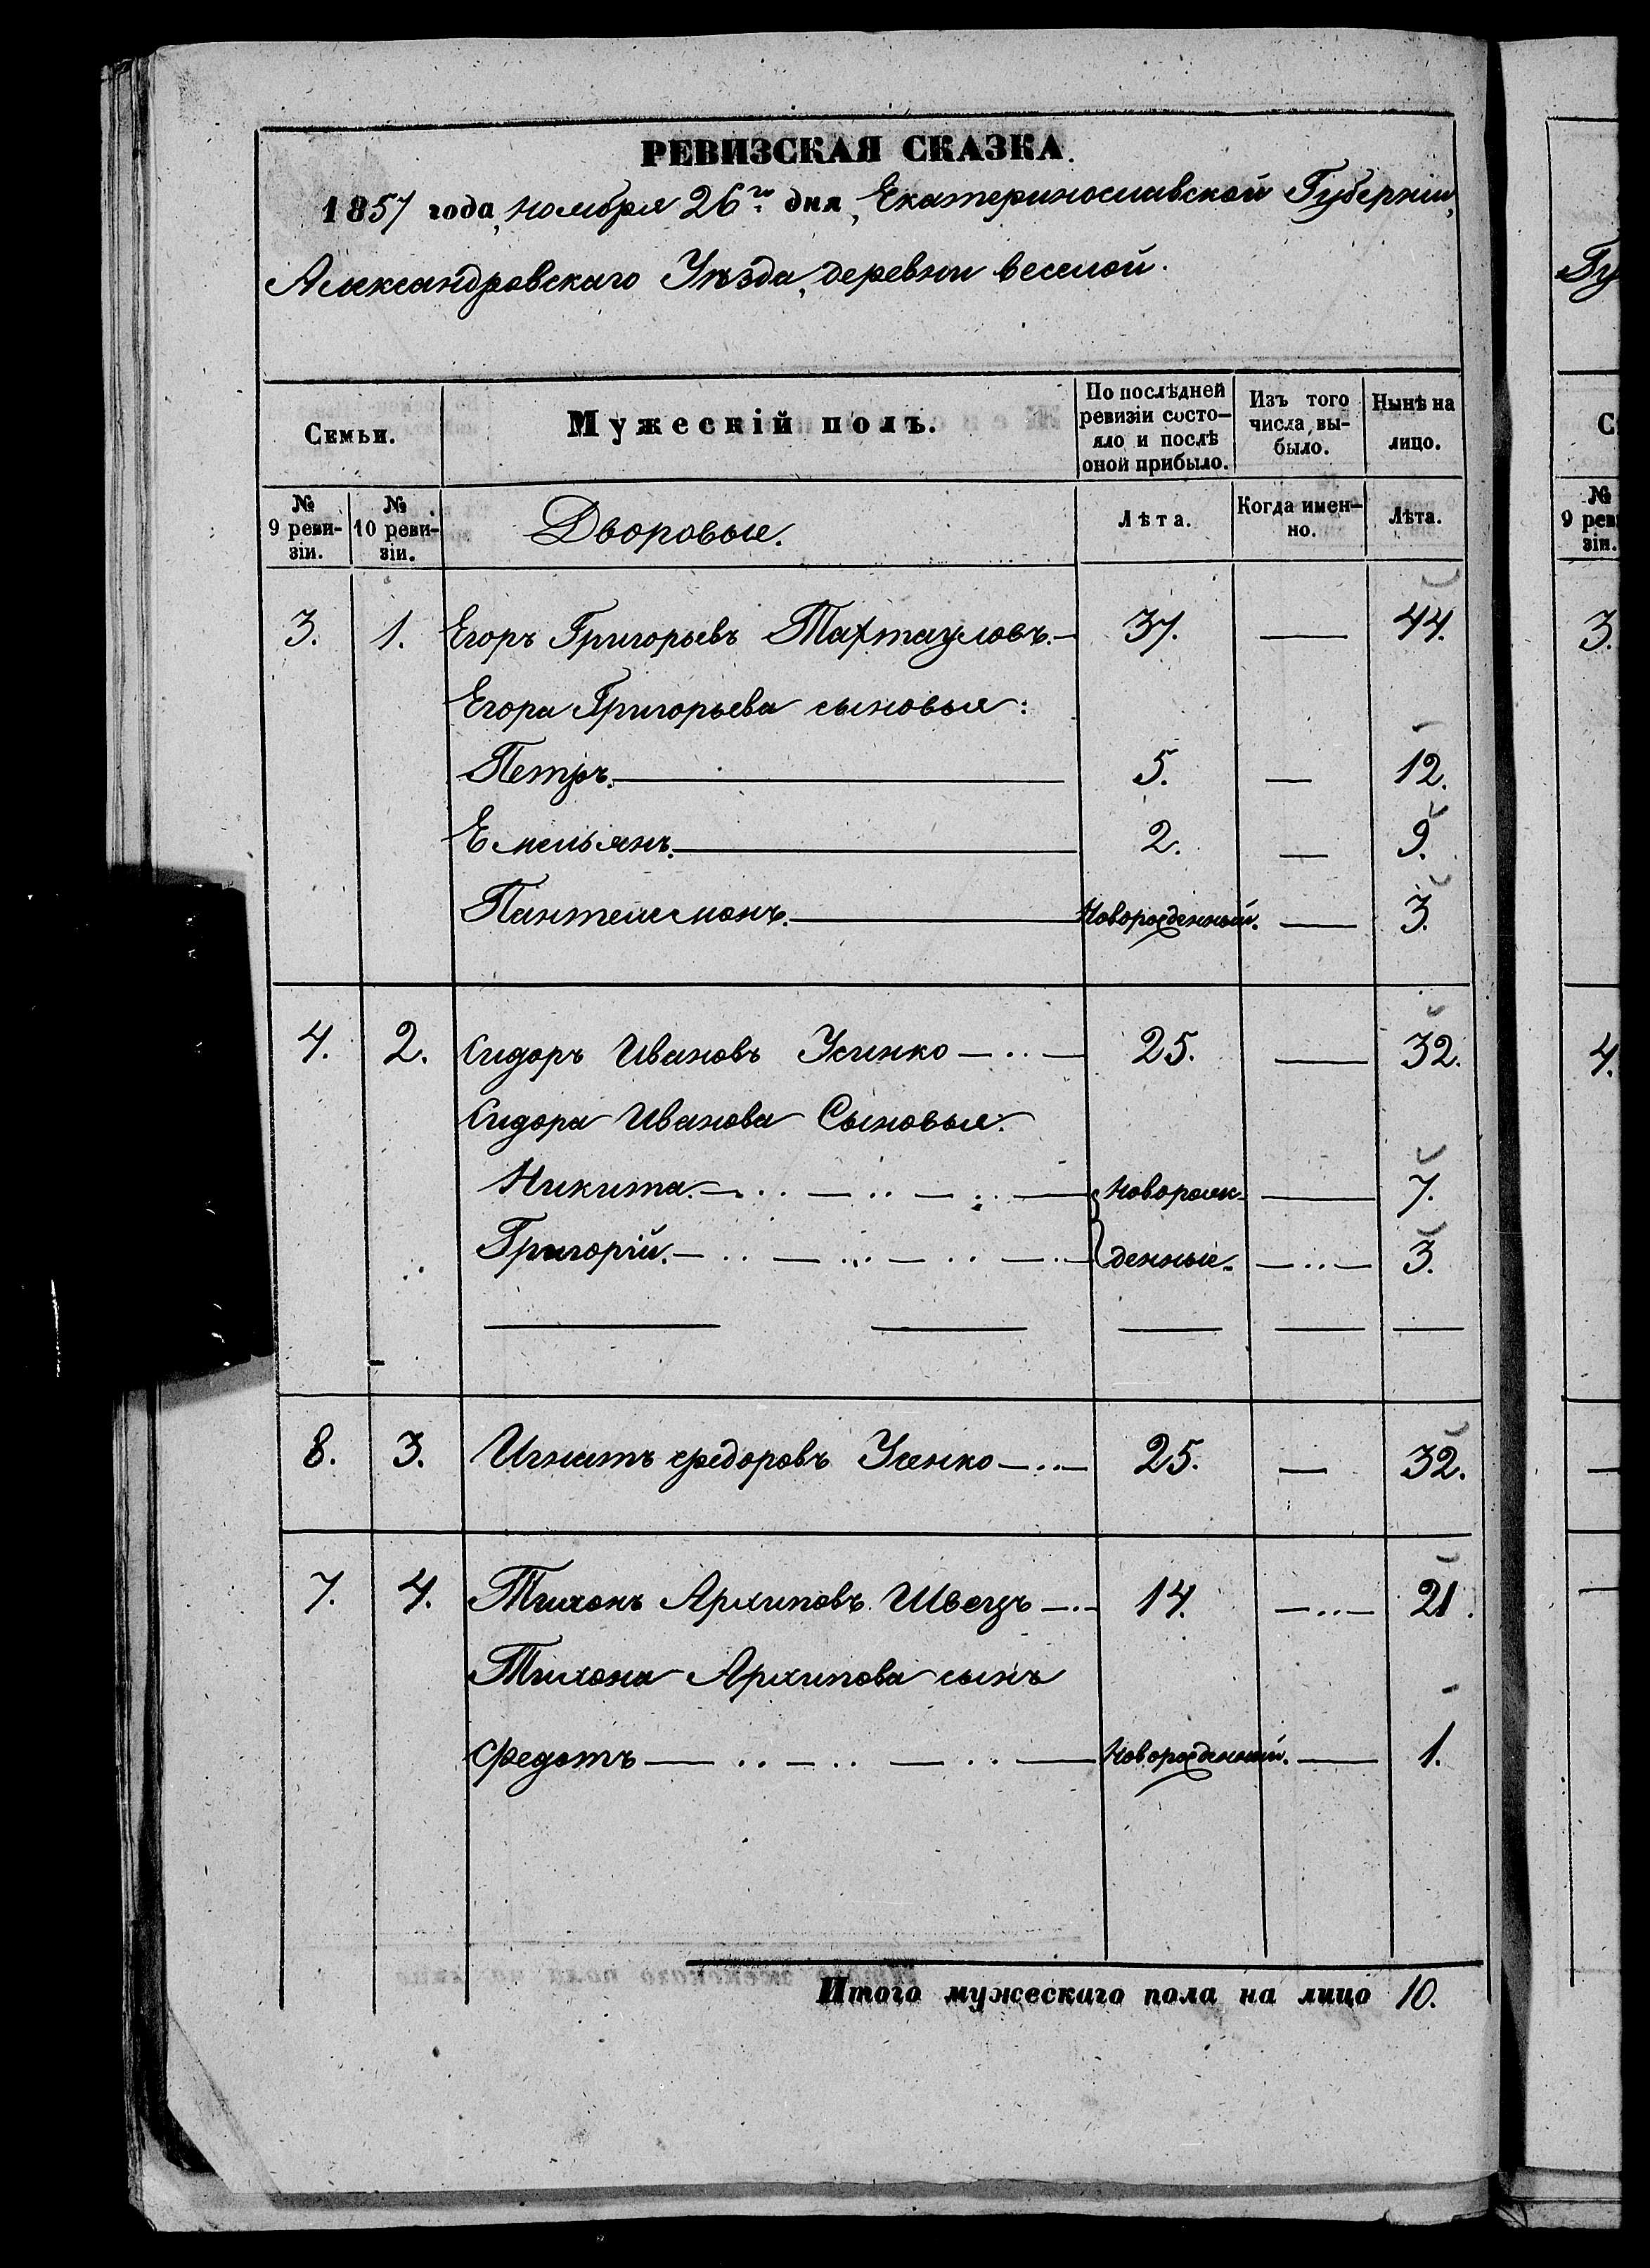 РЕВИЗСКАЯ СКАЗКА.
1857 года, ноября 26го дня, Екатеринославской Губерніи,
Александровскаго Уѣзда, деревни веселой.
Семьи.
Мужескій полъ.
По послѣдней ревизіи состо-яло и послѣ оной прибыло.
Изъ того числа вы-было.
Нынѣ на лицо.
№ 9 реви-зіи.
№ 10 реви-зіи.
Дворовые.
Лѣта.
Когда имен-но.
Лѣта.
3. 1. Егоръ Григорьевъ Тахтауловъ.— 37. — 44.
Егора Григорьева сыновья:
Петръ. — 5. — 12.
Емельянъ. — 2. — 9.
Пантелемонъ. — Новорожденный. — 3.
4. 2. Сидоръ Ивановъ Усинко — 25. — 32.
Сидора Иванова Сыновья:
Никита. — Новорож- — 7.
Григорій. — денные. — 3.
8. 3. Игнатъ Федоровъ Усенко — 25. — 32.
7. 4. Тихонъ Архиповъ Швецъ — 14. — 21.
Тихона Архипова сынъ
Федотъ — Новорожденный. — 1.
Итого мужескаго пола на лицо 10.
Гу
С
№
9 рев
зіи.
3.
4.